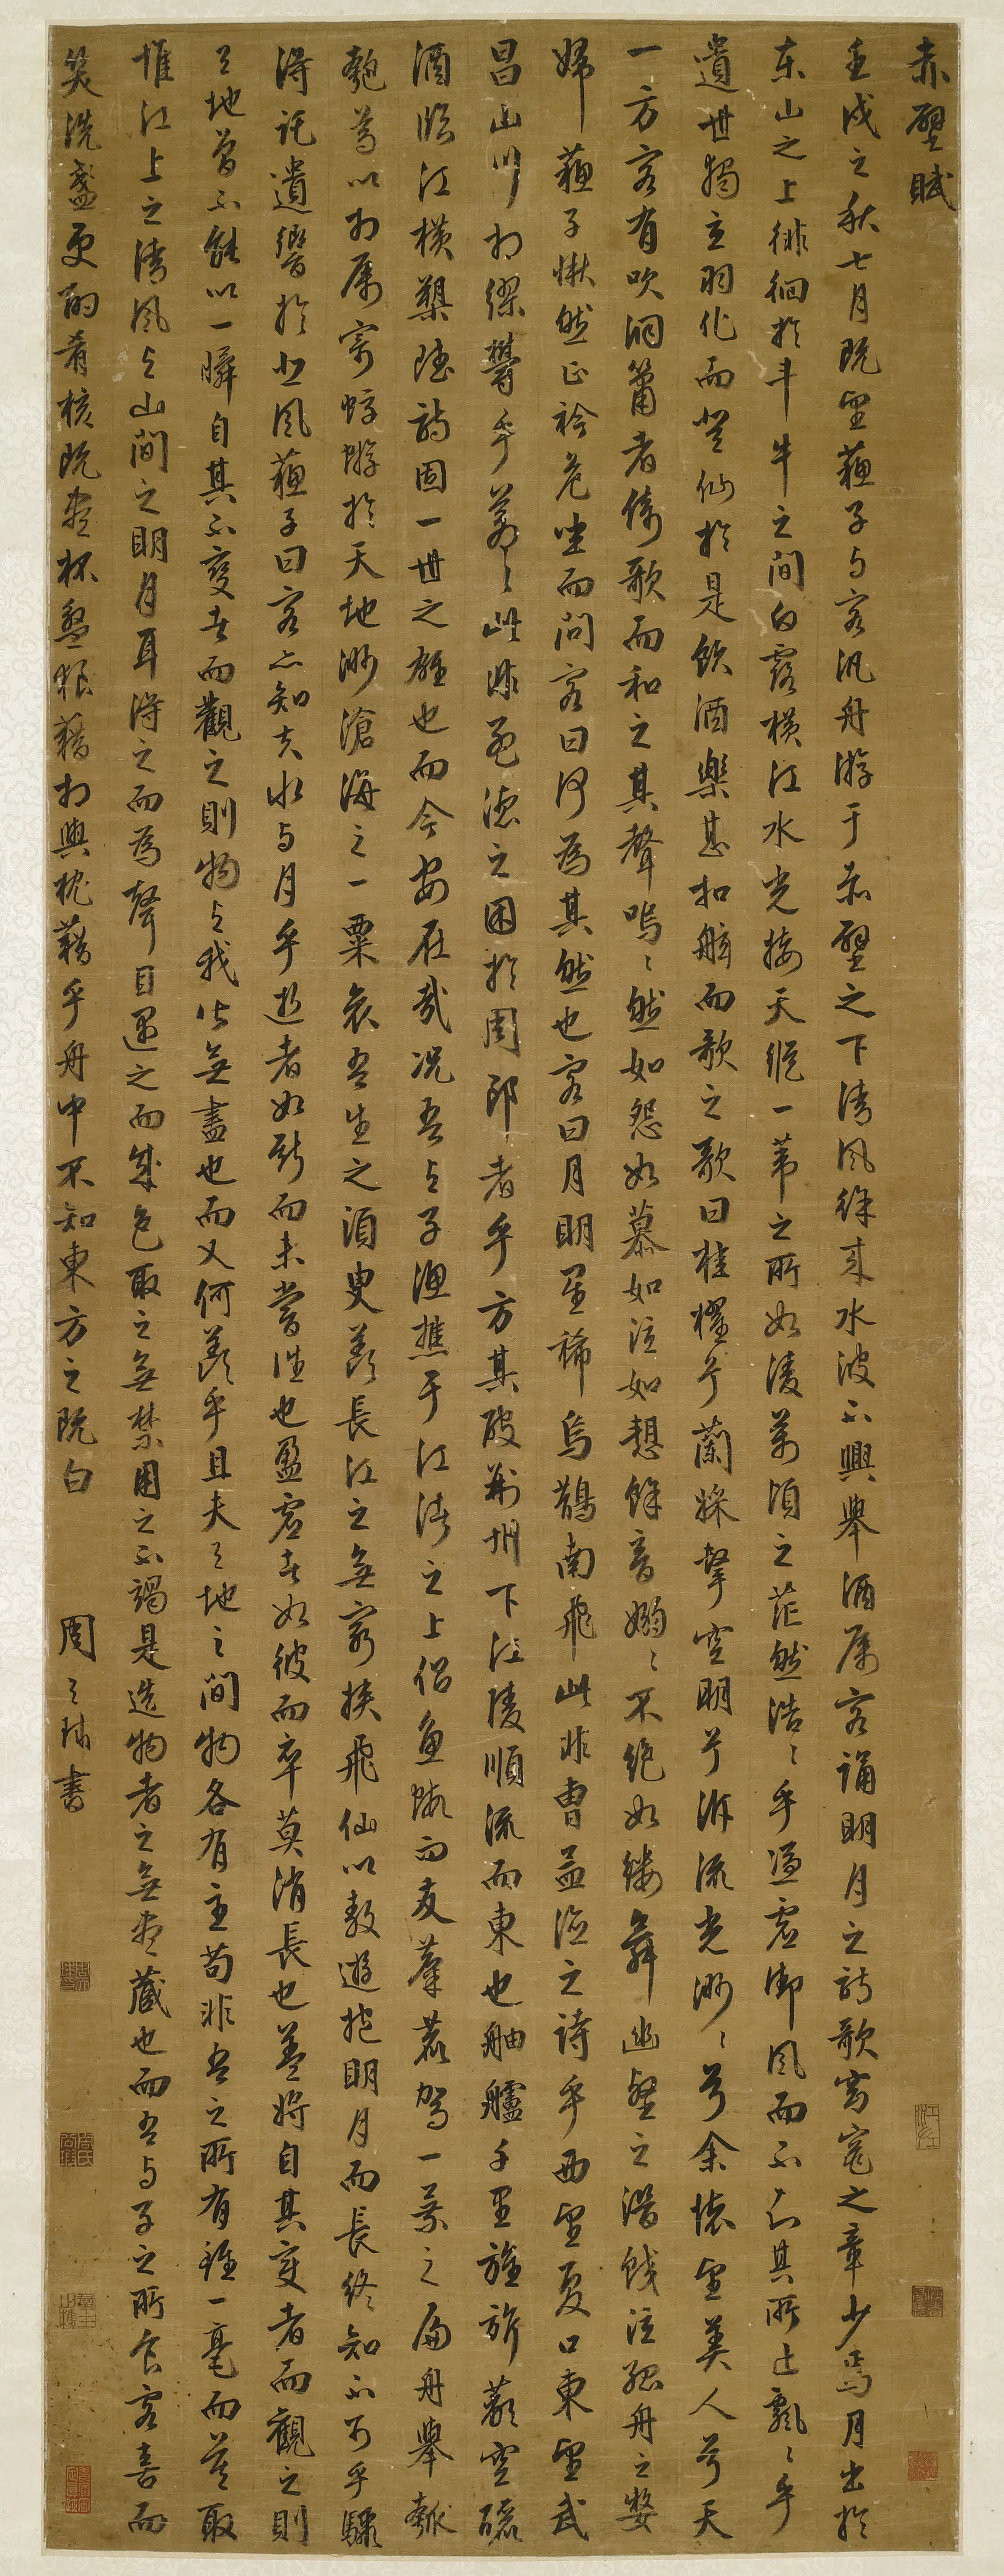 赤壁賦
壬戌之秋七月既望蘇子与客汎舟游于赤壁之下清風徐来水波不興舉酒属客誦明月之詩歌窈窕之章少焉月出於
东山之上徘徊於斗牛之间白露横江水光接天縱一苇之所如凌萬頃之茫然浩〻乎馮虚御風而不知其所止飄〻乎
遺世獨立羽化而登仙於是飲酒樂甚扣舷而歌之歌曰桂櫂兮蘭槳擊空明兮泝流光渺〻兮余懐望美人兮天
一方客有吹洞簫者倚歌而和之其聲嗚〻然如怨如慕如泣如愬餘音嫋〻不绝如缕舞幽壑之潜蛟泣孤舟之嫠
婦蘇子愀然正襟危坐而问客曰何為其然也客曰月明星稀烏鵲南飛此非曹孟德之詩乎西望夏口東望武
昌山川相缪鬱乎蒼〻此非孟德之困於周郎者乎方其破荆州下江陵順流而東也舳艫千里旌旂蔽空釃
酒臨江横槊賦詩固一世之雄也而今安在哉况吾与子漁樵于江渚之上侣魚蝦而友麋鹿駕一葉之扁舟舉匏
樽以相属寄蜉蝣於天地渺滄海之一粟哀吾生之須臾羨長江之無窮挟飛仙以敖遊抱明月而長終知不可乎驟
得託遺響於悲風蘇子曰客亦知夫水与月乎逝者如斯而未嘗往也盈虚者如彼而卒莫消長也盖將自其变者而觀之則
天地曾不能以一瞬自其不变者而觀之則物与我皆無盡也而又何羨乎且夫天地之间物各有主苟非吾之所有雖一毫而莫取
惟江上之清風与山间之明月耳得之而為聲目遇之而成色取之無禁用之不竭是造物者之無盡蔵也而吾与子之所食客喜而
笑洗盞更酌肴核既盡杯盤狼藉相與枕藉乎舟中不知東方之既白
周天球書